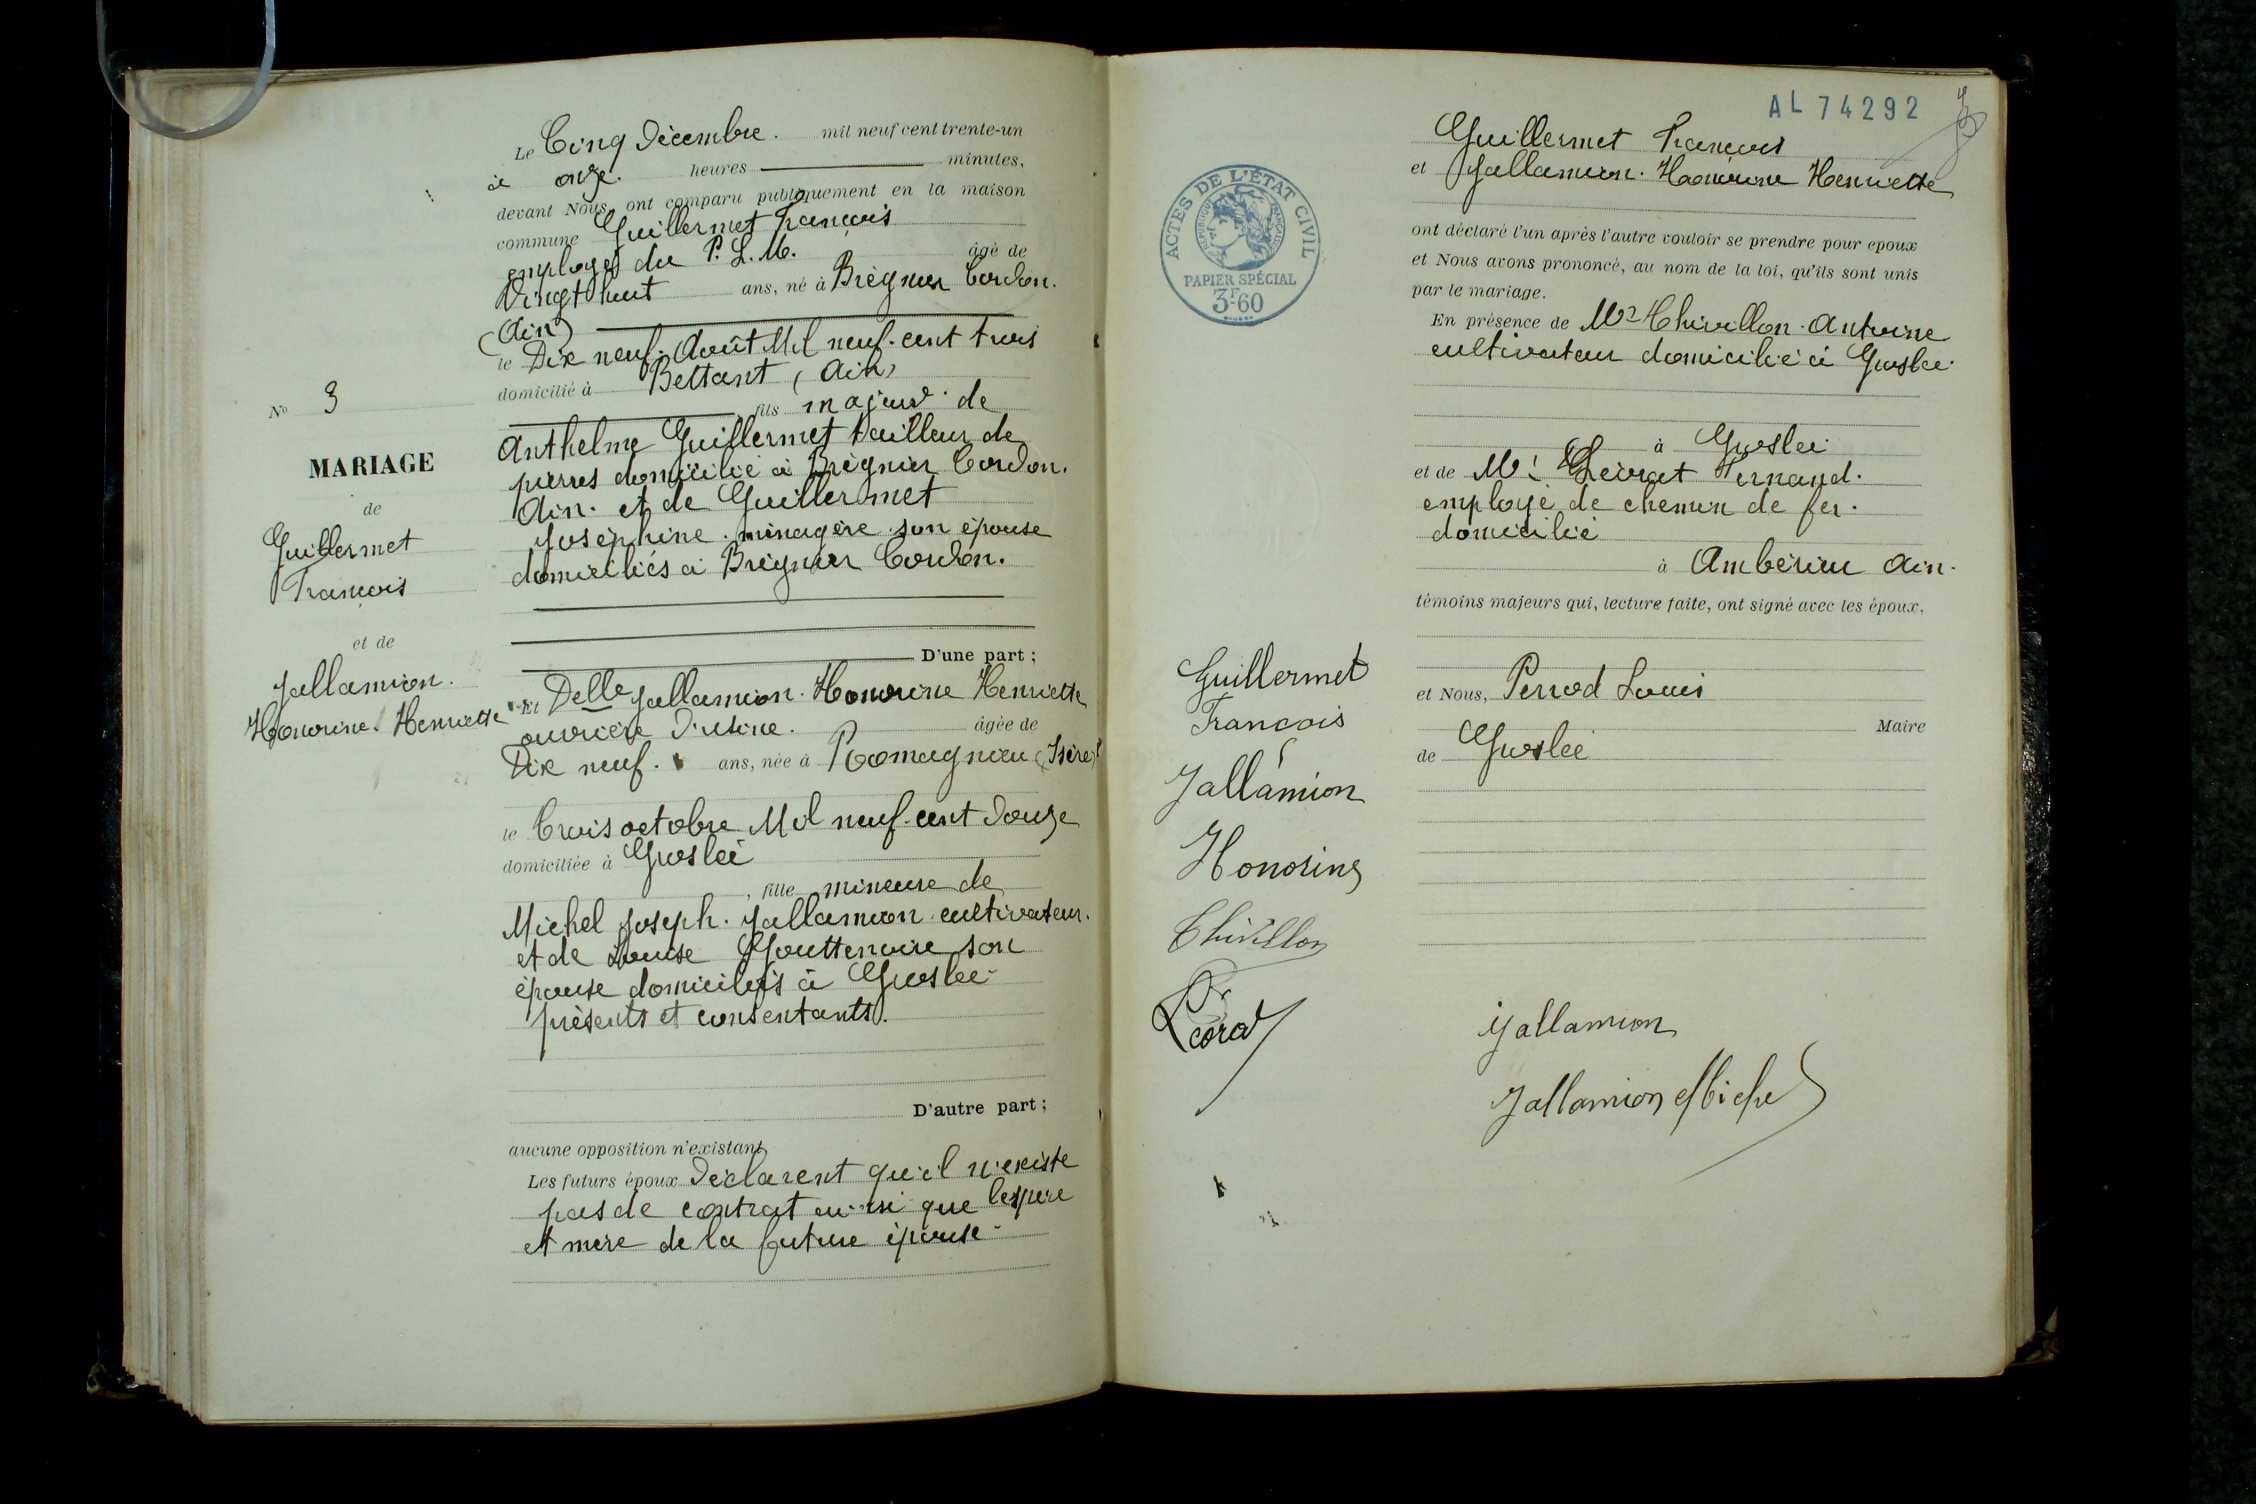 Le Cinq Décembre. mil neuf cent trente-un
à onze. heures minutes,
devant Nous, ont comparu publiquement en la maison
commune Guillermet François
employé du P. L. M. âgé de
Vingt huit ans, né à Brégnier Cordon.
(Ain)
le Dix neuf. Août Mil neuf. cent trois
domicilié à Bettant (Ain)
fils majeur de
Anthelme Guillermet tailleur de
pierres domicilié à Brégnier Cordon.
Ain. et de Guillermet
Joséphine. ménagère son épouse
domiciliés à Brégnier Cordon.
D'une part ;
Et Delle Jallamion. Honorine Henriette
ouvrière d'usine. âgée de
Dix neuf. ans, née à Romagnieu (Isère)
le Trois octobre Mil neuf. cent douze
domiciliée à Groslée
, fille mineure de
Michel Joseph. Jallamion cultivateur.
et de Louise Gouttenoire son
épouse domiciliés à Groslée
présents et consentants.
D'autre part ;
aucune opposition n'existant
Les futurs époux Déclarent qu'il n'existe
pas de contrat ainsi que les père
et mère de la future épouse
No 3
MARIAGE
de
Guillermet
François
et de
Jallamion.
Honorine. Henriette
AL 74292
Guillermet François
et Jallamion. Honorine Henriette
ont déclaré l'un après l'autre vouloir se prendre pour époux
et Nous avons prononcé, au nom de la loi, qu'ils sont unis
par le mariage.
En présence de Mr Thivillon. Antoine
cultivateur domicilié à Groslée.
à Groslée
et de Mr Fernand.
employé de chemin de fer.
domicilié
à Ambérieu Ain.
témoins majeurs qui, lecture faite, ont signé avec les époux,
et Nous, Perrod Louis
Maire
de Groslée
ACTES DE L'ÉTAT CIVIL
RÉPUBLIQUE FRANÇAISE
PAPIER SPÉCIAL
3F60
Guillermet
François
Jallamion
Honorine
Thivillon
Jallamion
Jallamion Michel